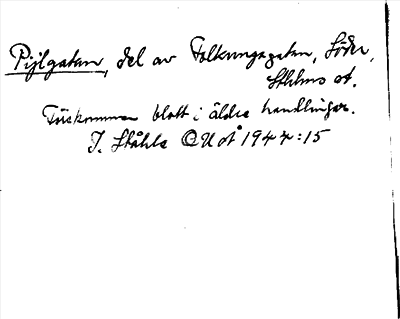 Pijlgatan, del av Folkungagatan, Söder,
Sthlms st.
Förekommer blott i äldre handlingar.
I. Ståhle OUÅ 1944:15